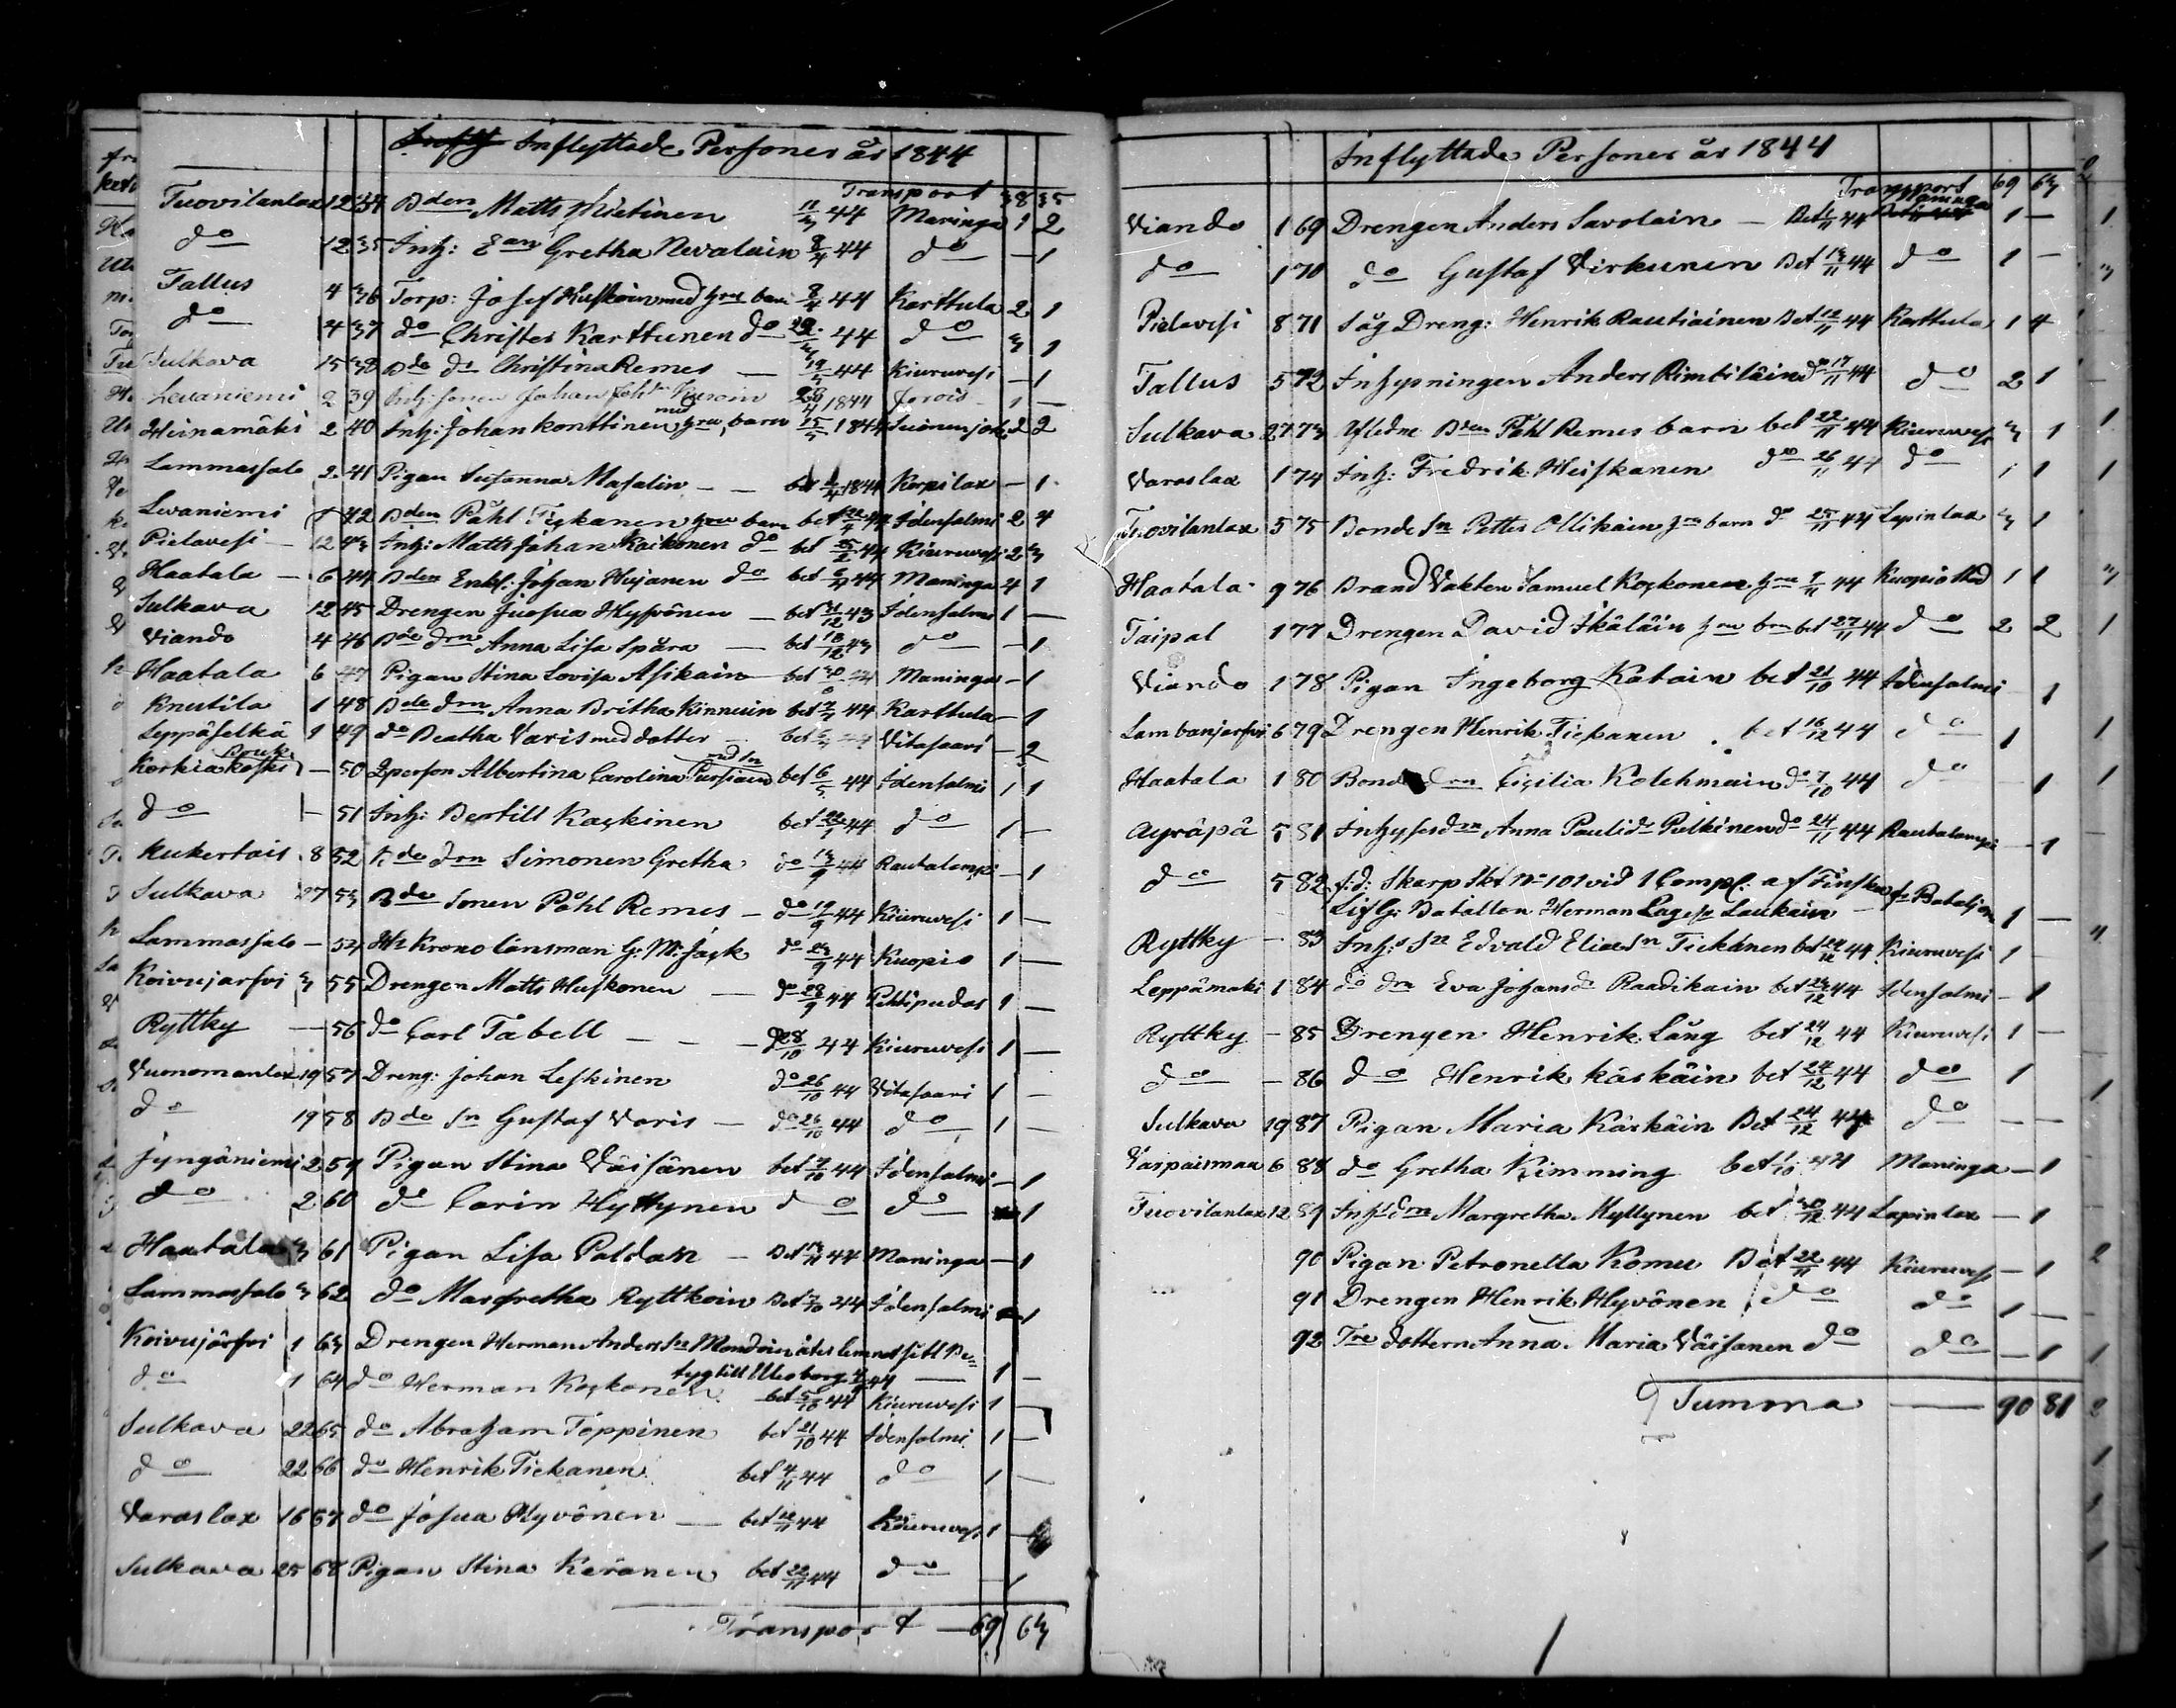 Inflyttade Personer år 1844
Transport 38 35
Tuovilanlax 12 34 Bden Matts Mietinen 44 Maninga 1 2
do 12 35 Inh: Ean Gretha Nevalain 8/4 44 do — 1
Tallus 4 36 Torp: Josef Huskoin med hru barn 8/4 44 Karttula 2 1
do 4 37 do Christer Karttunen do 44 do 3 1
Sulkava 15 38 Bde dr Christina Remes — 44 Kiuruvesi — 1
Levaniemi 2 39 Inh: sonen Johan 1844 Jorois 1 —
Heinamäki 2 40 Inh: Johan Konttinen med hru, barn 1844 Suonenjoki 2 2
Lammassalo 2 41 Pigan Susanna Masalin — — bet 1844 Korpilax — 1
Levaniemi 42 Bden Påhl Tickanen hru barn bet 44 Idensalmi 2 4
Pielavesi — 12 43 Inh: Matts Johan Kaikonen do bet 44 Kiuruvesi 2 3
Haatala — 6 44 Bden Enkl: Johan Hujanen do bet 44 Maninga 4 1
Sulkava 12 45 Drengen Juosua Hyvönen — bet 31/12 43 Idensalmi 1 —
Viando 4 46 Bde drn Anna Lisa Spåra — bet 18/12 43 do — 1
Haatala 6 47 Pigan Stina Lovisa Asikain bet Maninga — 1
Knutila 1 48 Bde drn Anna Britha Kinnuin bet 44 Karttula — 1
Leppäselkä 1 49 do Beatha Varis med dotter — bet Vitasaari — 2
Korkiakoski Bruk — 50 Qperson Albertina Carolina Pursiain med sn bet 6/5 44 Idensalmi 1 1
do — 51 Inh: Bertill Kaskinen bet 44 do 1 —
Kukertais 8 52 Bde drn Simonen Gretha do 44 Rautalampi — 1
Sulkava 27 53 Bde Sonen Påhl Remes — do 19/9 44 Kiuruvesi 1 —
Lammassalo — 54 Hr Krono länsman G: M: Jack do 44 Kuopio 1 —
Koivujarfvi 3 55 Drengen Matts Huskonen — do 28/9 44 Pihtipudas 1 —
Ryttky — 56 do Carl Tabell — — — 44 Kiuruvesi 1 —
Vuonomanlax 19 57 Dreng: Johan Leskinen do 26/10 44 Vitasaari 1 —
do 19 58 Bde Sn Gustaf Varis — do 26/10 44 do 1 —
Jyngäniemi 2 59 Pigan Stina Väisänen bet 7/10 44 Idensalmi — 1
do 2 60 do Carin Hyttynen do do 1
Haatala 3 61 Pigan Lisa Paldan — Bet 44 Maninga — 1
Lammassalo 3 62 do Margretha Ryttkoin Bet 7/10 44 Idensalmi 1
Koivujärfvi 1 63 Drengen Herman Anders Sn Mondoin återlemnat sitt Be=
tyg till Uleoborg 44 — 1 —
do 1 64 do Herman Koskonen bet 5/10 44 Kiuruvesi 1 —
Sulkava 22 65 do Abraham Toppinen bet 21/10 44 Idensalmi 1 —
do 22 66 do Henrik Tickanen bet 4/11 44 do 1 —
Varaslax 16 67 do Josua Hyvönen — bet 44 Kiuruvesi 1 —
Sulkava 25 68 Pigan Stina Keränen bet 22/11 44 do — 1
Transport — 69 63
Inflyttade Personer år 1844
Transport 69 63
Viando 1 69 Drengen Anders Savolain — Bet 44 Maninga 1 —
do 1 70 do Gustaf Virkunen Bet 13/11 44 do 1 —
Pielavesi 8 71 Såg Dreng: Henrik Rautiainen Bet 12/11 44 Karttula 1 4
Tallus 5 72 Inhysningen Anders Rimbiläin do 17/11 44 do 2 1
Sulkava 27 73 Afledne Bden Påhl Remes barn bet 22/11 44 Kiuruvesi 3 1
Varaslax 1 74 Inh: Fredrik Heiskanen do 26/11 44 do 1 1
Tuovilanlax 5 75 Bonde Sn Petter Ollikain hru barn do 25/11 44 Lapinlax 3 1
Haatala 9 76 Brand Vakten Samuel Koskonen hru 44 Kuopio stad 1 1
Taipal 1 77 Drengen David Ikäläin hru brn bet 27/11 44 do 2 2
Viando 1 78 Pigan Ingeborg Katain bet 21/10 44 Idensalmi — 1
Lambanjarfvi 6 79 Drengen Henrik Tickanen bet 16/12 44 do 1
Haatala 1 80 Bonde drn Cicilia Kolehmain do 7/10 44 do — 1
Ayräpä 5 81 Inhyses drn Anna Paulidr Pulkinen do 24/11 44 Rautalampi — 1
do 5 82 f.d: Skarp Skt No 101 vid 1 Comp: af Finska
Lif G: Batallion Herman Lagesn Laukain — fr Bataljon 1 —
Ryttky — 83 Inh:s Sn Edvald Eliae Sn Tickánen bet 24/12 44 Kiuruvesi 1 —
Leppämaki 1 84 do drn Eva Johansdr Raadikain bet 44 Idensalmi — 1
Ryttky — 85 Drengen Henrik Lång bet 24/12 44 Kiuruvesi 1 —
do — 86 do Henrik Käskäin bet 24/12 44 do 1
Sulkava 19 87 Pigan Maria Käskäin Bet 24/12 44 do — —
Vaspaismaa 6 88 do Gretha Kimming bet 1/10 44 Maninga — 1
Tuovilanlax 12 89 Inhs drn Margretha Myllynen bet 30/12 44 Lapinlax — 1
90 Pigan Petronella Komu Bet 22/11 44 Kiuruvesi — 1
91 Drengen Henrik Hyvönen do do 1 —
92 Tre dottern Anna Maria Väisanen do do — 1
Summa — 90 81